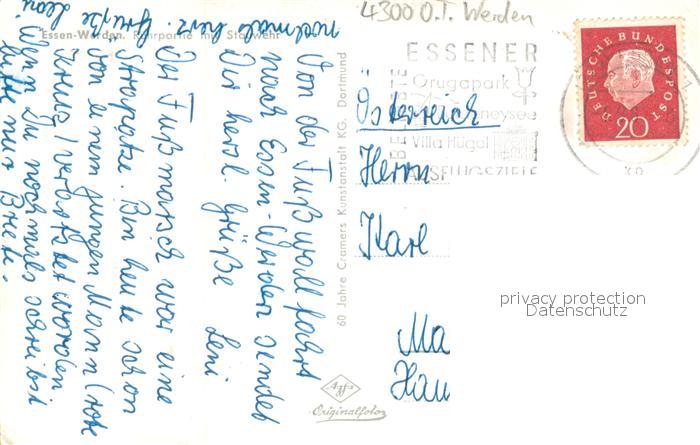 4300 O.T. Werden
Essen-Werden. Ruhrpartie mit Stauwehr
nochmals herz.
Grüße
Leni
Von der Fußwallfahrt
nach Essen-Werden sendet
Dir herzl. Grüße Leni
Der Fußmarsch war eine
Strapatze. Bin heute schon
von einem jungen Mann (rote
verarztet worden
Wenn Du nochmals schreibst
bitte nur Briefe.
60 Jahre Cramers Kunstanstalt KG. Dortmund
ESSENER
Grugapark
Baldeneysee
Villa Hügel
AUSFLUGSZIELE
DEUTSCHE BUNDESPOST
20
Österreich
Herrn
Karl
Ma
Hau
Agfa
Originalfoto
privacy protection
Datenschutz